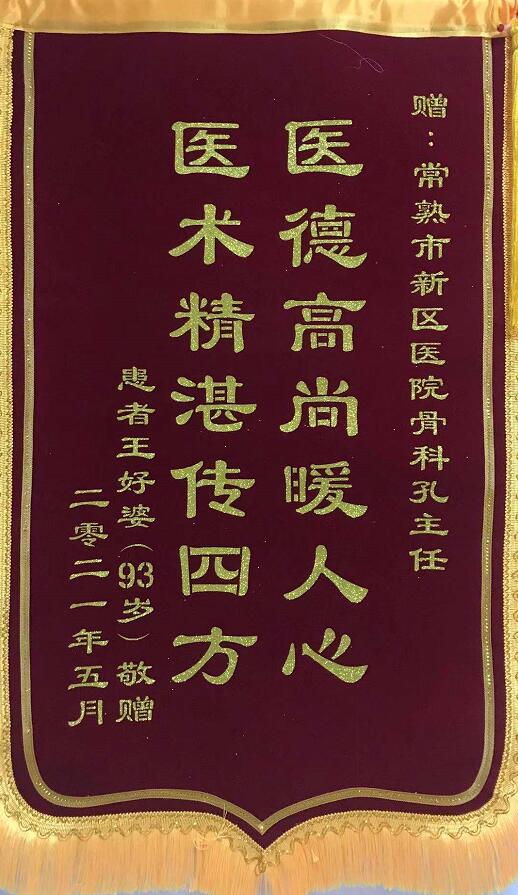 赠：常熟市新区医院骨科孔主任
医德高尚暖人心
医术精湛传四方
患者王好婆（93岁）敬赠
二零二一年五月